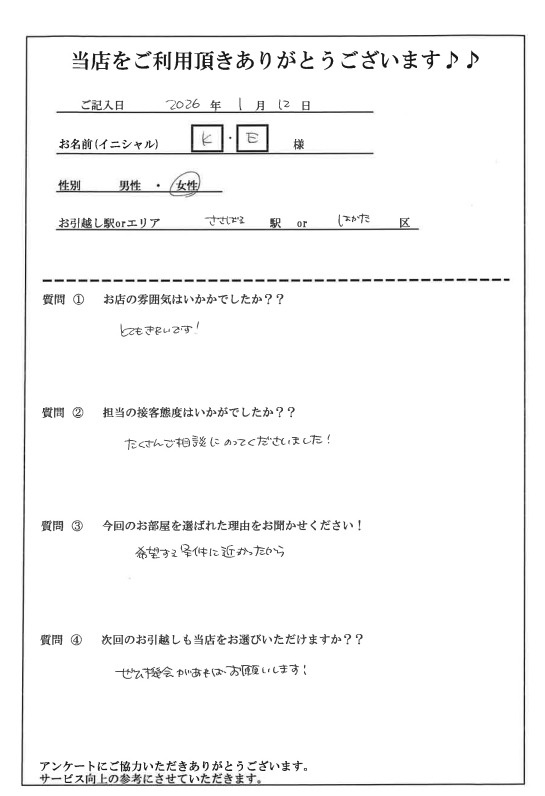 当店をご利用頂きありがとうございます♪♪
ご記入日 2026 年 1 月 12 日
お名前(イニシャル) K ・ E 様
性別 男性 ・ 女性
お引越し駅orエリア ささばる 駅 or はかた 区
質問 ① お店の雰囲気はいかかでしたか??
とてもきれいです!
質問 ② 担当の接客態度はいかがでしたか??
たくさんご相談にのってくださいました!
質問 ③ 今回のお部屋を選ばれた理由をお聞かせください!
希望する条件に近かったから
質問 ④ 次回のお引越しも当店をお選びいただけますか??
ぜひ機会があればお願いします!
アンケートにご協力いただきありがとうございます。
サービス向上の参考にさせていただきます。